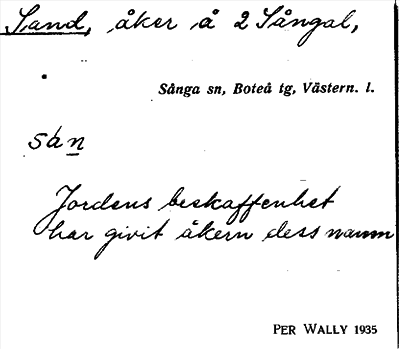 Sand, åker å 2 Sångal,
Sånga sn, Boteå tg, Västern. l.
sán
Jordens beskaffenhet
har givit åkern dess namn
PER WALLY 1935